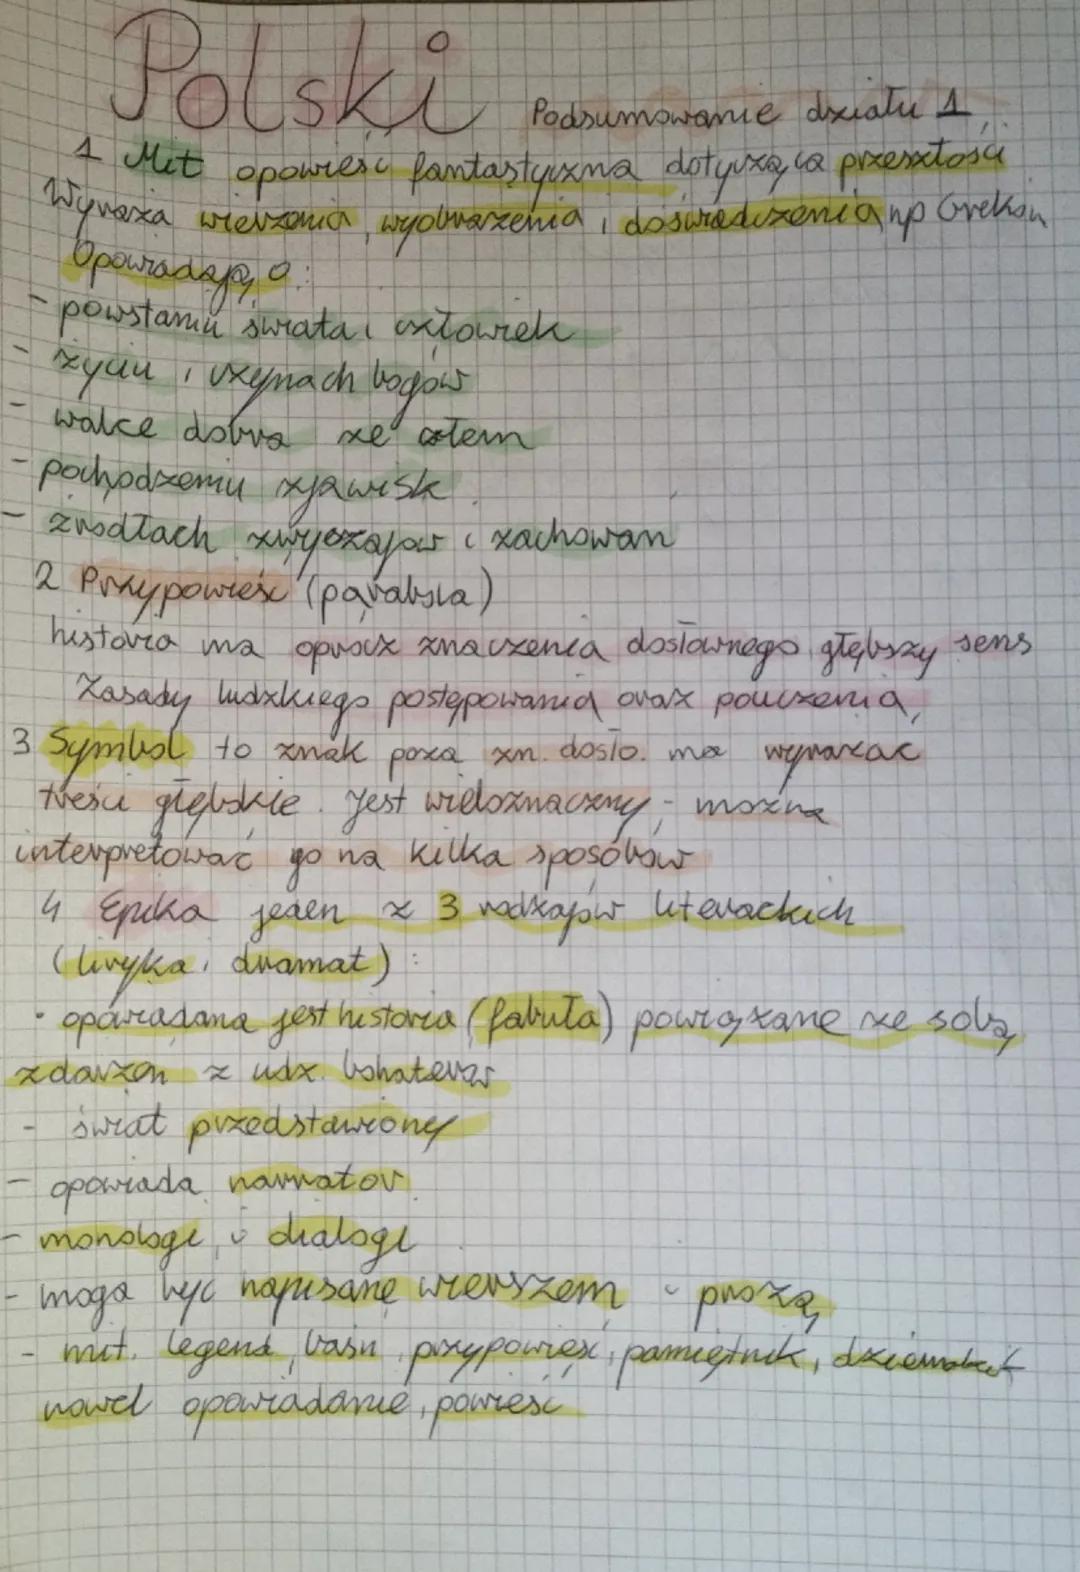 Polski
Podsumowanie działu 1
1 Mit opowieść fantastyczna dotycząca przeszłości
Wyraża wierzenia, wyobrażenia i doświadczenia np Greków
Opowiadają o:
- powstaniu świata i człowiek
- życiu i czynach bogów
- walce dobra ze złem
- pochodzeniu zjawisk
- źrodłach zwyczajow i zachowan
2 Przypowieść (parabola)
historia ma oprócz znaczenia dosłownego głębszy sens
Zasady ludzkiego postępowania oraz pouczenia,
3 Symbol to znak poza zn. dosło. ma wyrażac
treści głębokie. Jest wieloznaczny - można
interpretować go na kilka sposóbów
4 Epika jeden z 3 rodzajów literackich
(liryka i dramat):
• opowiadana jest historia (fabuła) powiązane ze sobą
zdarzen z udz. bohaterów
- świat przedstawiony
- opowiada narrator
- monologi i dialogi
- moga być napisane wierszem i prozą
- mit, legend, baśń, przypowieść, pamiętnik, dziennik
nowel opowiadanie, powieść